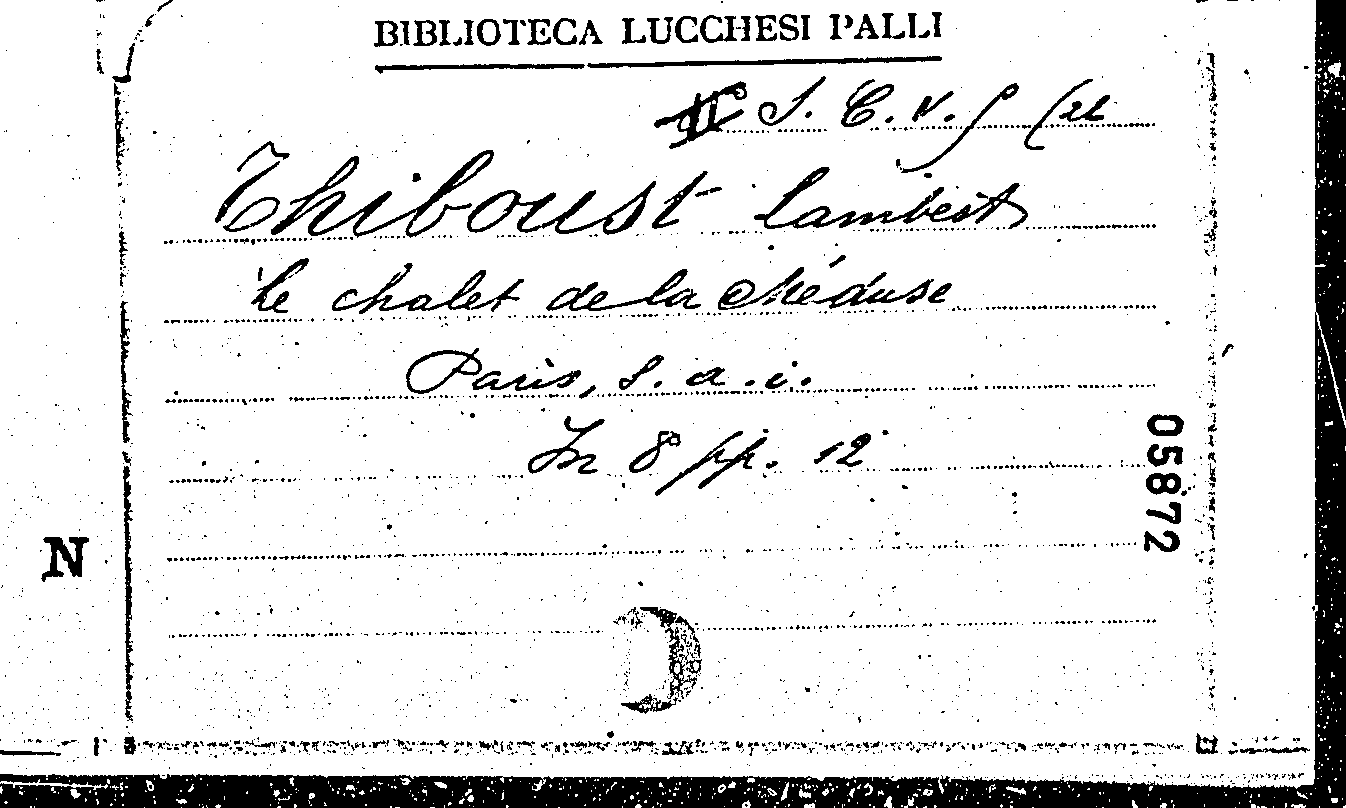 BIBLIOTECA LUCCHESI PALLI
S. C. V. 9 (22
Thiboust Lambert
Le chalet de la Méduse
Paris, s. a. i.
In 8° pp. 12
05872
N